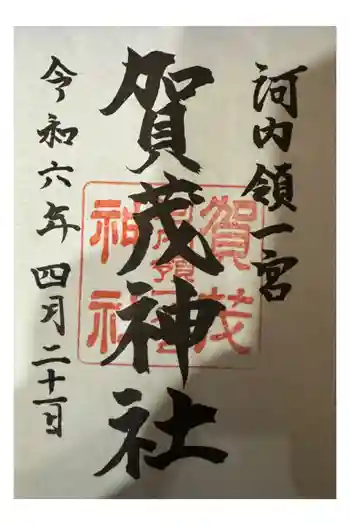 河内領一宮
賀茂神社
令和六年四月二十一日
賀茂
河内領一宮
神社